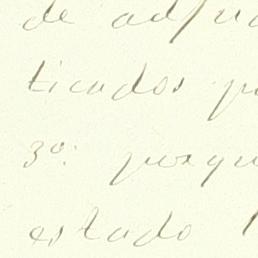 de adju
ticados p
3º: porqu
estado